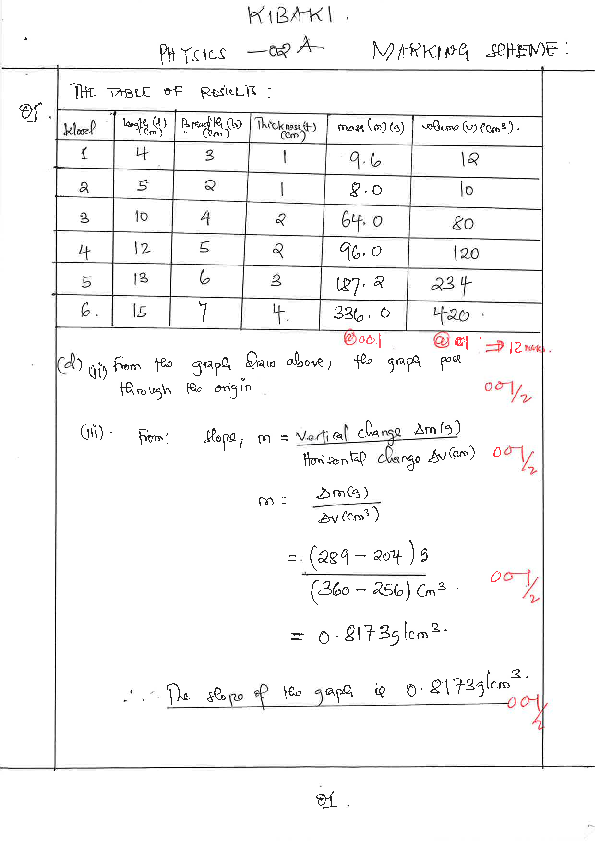 KIBAKI.
PHYSICS -02A MARKING SCHEME:
THE TABLE OF RESULTS:
01.
Length (l) (cm) Breadth (b) (cm) Thickness (t) (cm) mass (m) (g) volume (v) (cm³).
1 4 3 1 9.6 12
2 5 2 1 8.0 10
3 10 4 2 64.0 80
4 12 5 2 96.0 120
5 13 6 3 187.2 234
6. 15 7 4. 336.0 420.
@001 @ 01 ⇒ 12 marks.
(d) (ii) From the graph above, the graph
through the origin 001/2
(iii). From: slope, m = Vertical change Δm(g)
Horizontal change Δv(cm) 001/2
m = Δm(g)
Δv(cm³)
= (289 - 204) g
(360 - 256) cm³. 001/2
= 0.8173g/cm³.
∴ The slope of the graph is 0.8173g/cm³.
001/2
01.